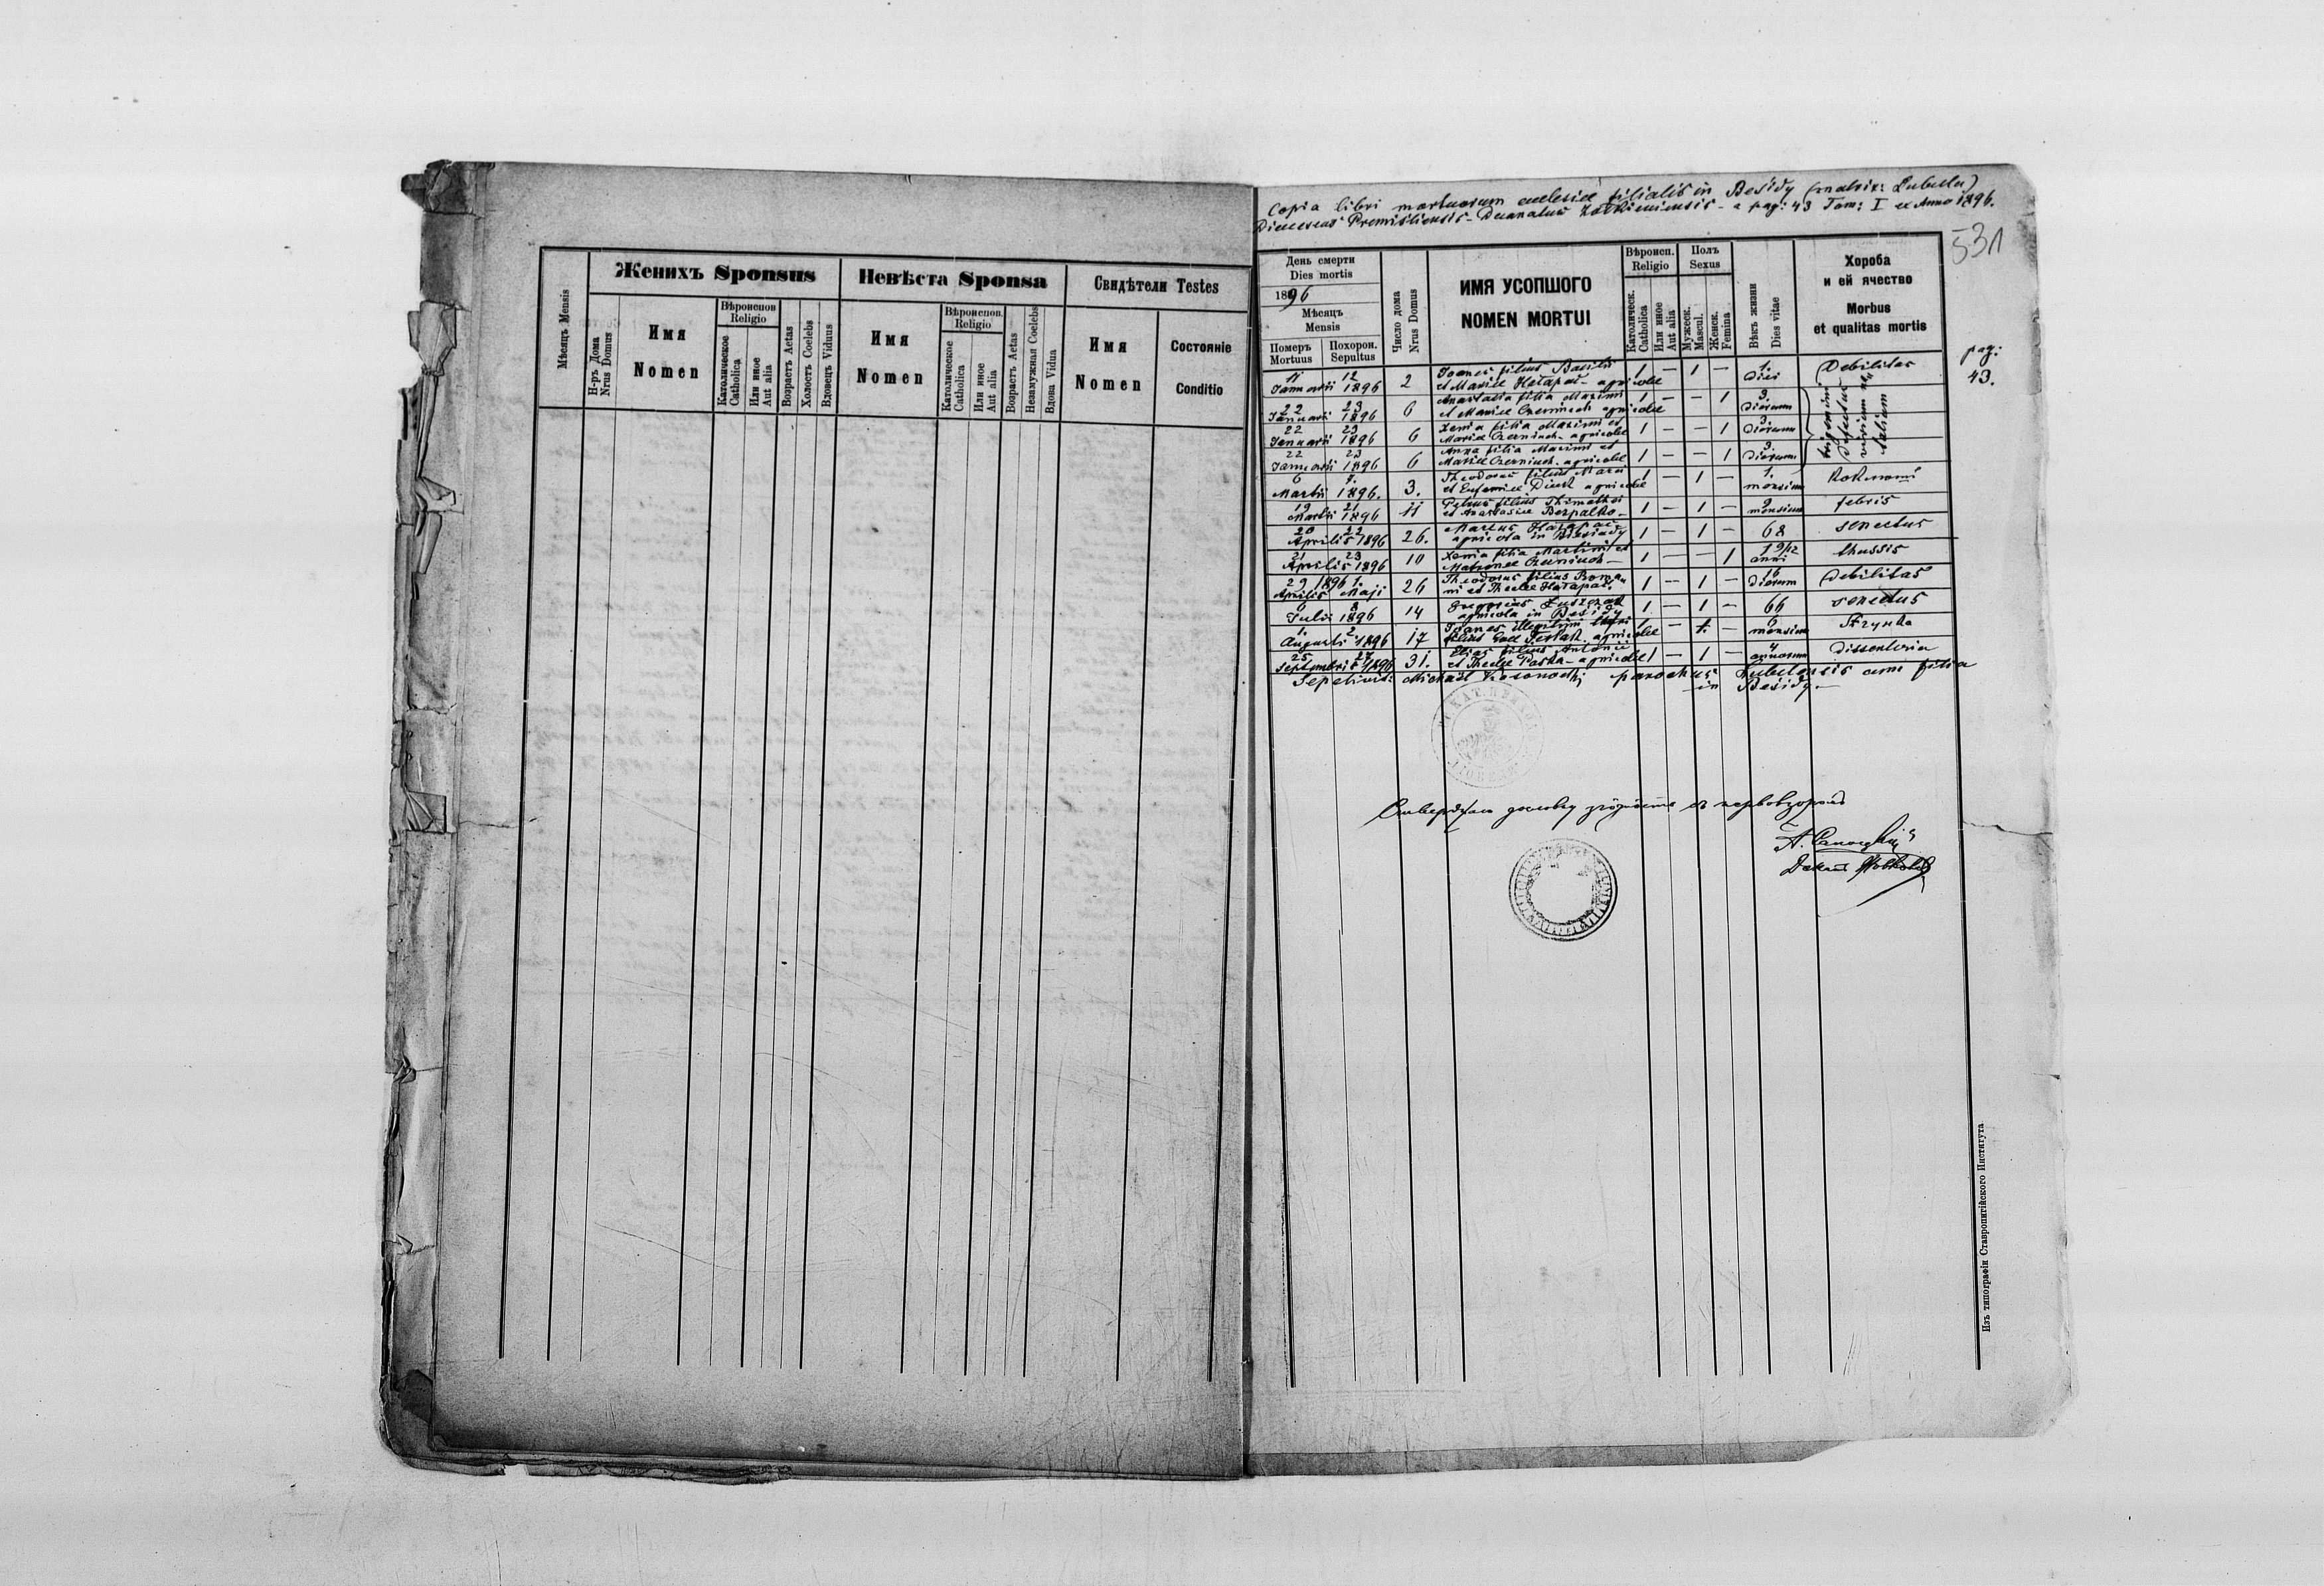 Женихъ Sponsus
Невѣста Sponsa
Свидѣтели Testes
Мѣсяцъ Mensis
Н-ръ Дома
Nrus Domus
Имя
Nomen
Вѣроиспов
Religio
Католическое
Catholica
Или иное
Aut alia
Возрастъ Aetas
Холостъ Coelebs
Вдовецъ Viduus
Имя
Nomen
Вѣроиспов.
Religio
Католическое
Catholica
Или иное
Aut alia
Возрастъ Aetas
Незамужная Coelebs
Вдова Vidua
Имя
Nomen
Состояніе
Conditio
Copia libri mortuorum ecclesiae filialis in Besidy (matrix: Lubella)
Dioeceseos Premisliensis - Decanatus Zolkieviensis - a pag: 43 Tom: I ex Anno 1896.
531
День смерти
Dies mortis
1896
Мѣсяцъ
Mensis
Померъ
Mortuus
Похорон.
Sepultus
Число дома
Nrus Domus
ИМЯ УСОПШОГО
NOMEN MORTUI
Вѣроисп.
Religio
Католическ.
Catholica
Или иное
Aut alia
Полъ
Sexus
Мужеск.
Mascul.
Женск.
Femina
Вѣкъ жизни
Dies vitae
Хороба
и ей ячество
Morbus
et qualitas mortis
pag:
43.
11 12 Joannes filius Basilii
Januarii 1896 2 et Mariae Hatapac - agricolae 1 — 1 — 1. diei Debilitas
22 23 Anastasia filia Maximi
Januarii 1896 6 et Mariae Czerniuch agricolae 1 — — 1 3. dierum
22 23 Xenia filia Maximi et
Januarii 1896 6 Mariae Czerniuch - agricolae 1 — — 1 3. dierum
22 23 Anna filia Maximi et
Januarii 1896 6 Mariae Czerniuch - agricolae 1 — — 1 3. dierum
trigemini
Defectus
virium
6 7. Theodorus filius Marci
Martii 1896. 3. et Eufemiae agricolae 1 — 1 — 1. mensium
19 21 Petrus filius Thimothei
Martii 1896 11 et Anastasiae Bezpalko - 1 — 1 — 9 mensium febris
20 22 Marcus Hatapac
Aprilis 1896 26. agricola in 1 — 1 — 68 senectus
21 23 Xenia filia Martini et
Aprilis 1896 10 Matronae Czerniuch — 1 — — 1 1 9/12 anni thussis
29 1896 1. Theodorus filius Roma
Aprilis Maji 26 ni et Theclae Hatapac 1 — 1 — 16 dierum Debilitas
6 8 Gregorius
Julii 1896 14 agricola in Besidy 1 — 1 — 66 senectus
1. 2. Joannes illegitimi
Augusti 1896 17 filius Evae agricolae 1 — 1. — 6 mensium
25 27 Elias filius Antonii
Septembris 1896 31. et Theclae Paska - agricolae 1 — 1 — 4 annorum dissenteria
Sepelivit: Michael Kosonocki parochus Lubelensis cum filia
in Besidy. —
А. Саноцкій